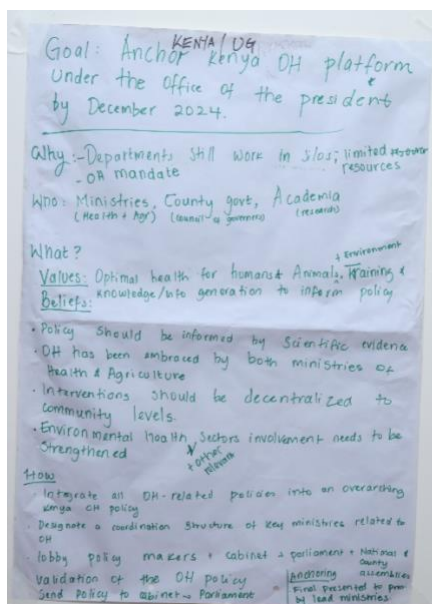 KENYA / UG
Goal: Anchor Kenya OH platform
Under the Office of the president
by December 2024.
Why:- Departments Still Work in silos; limited resources
- OH mandate
Who: Ministries, County govt, Academia
(Health + Agr) (council of governors) (research)
What?
+ Environment
Values: Optimal health for humans & Animals, Training &
Beliefs: knowledge/info generation to inform policy
• Policy should be informed by Scientific evidence
• OH has been embraced by both ministries of
Health & Agriculture
• Interventions should be decentralized to
community levels.
• Environmental Health, Sectors involvement needs to be
strengthened
+ other relevant
How
• Integrate all OH-related policies into an overarching
Kenya OH policy
• Designate a coordination structure of key ministries related to
OH
• lobby policy makers + cabinet + parliament + National &
County assemblies
Validation of the OH policy
Send Policy to Cabinet → Parliament
Anchoring
Final presented to
by lead ministries